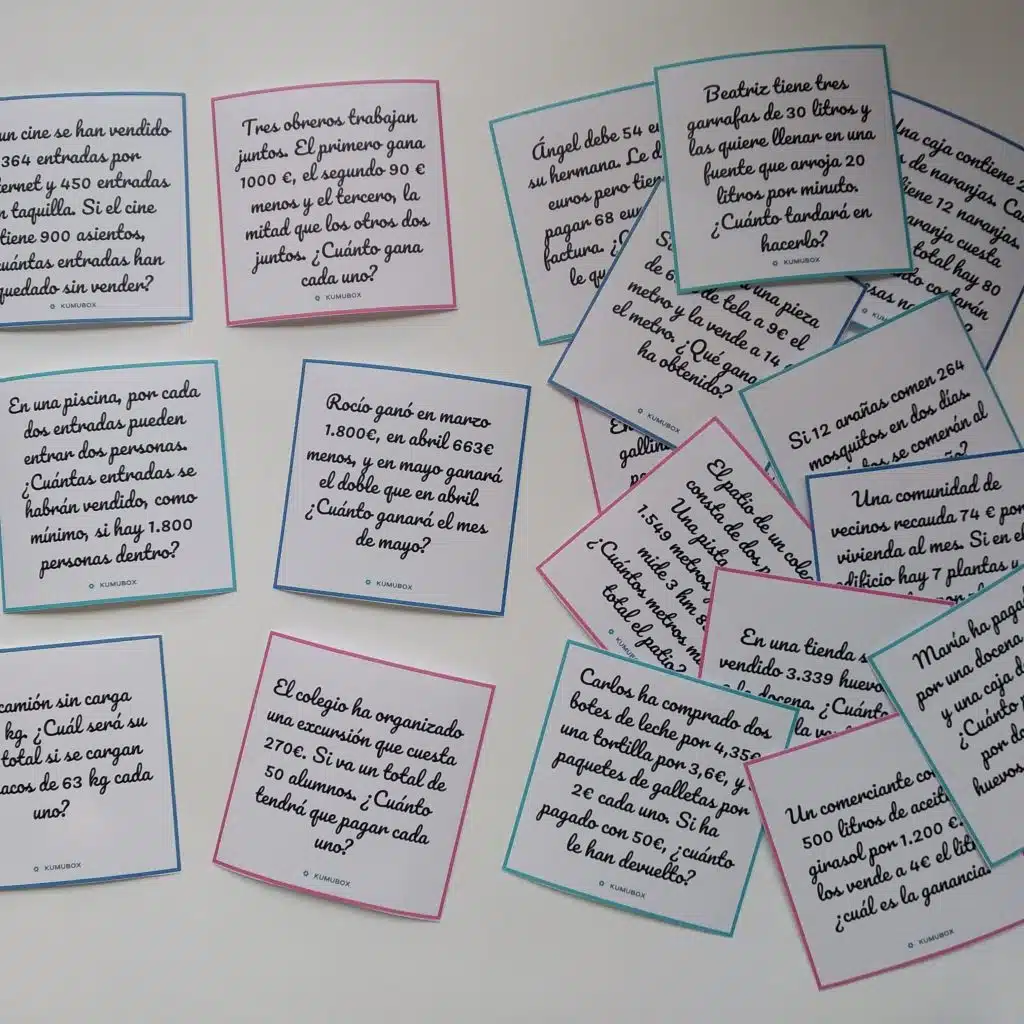 un cine se han vendido
364 entradas por
ternet y 450 entradas
n taquilla. Si el cine
tiene 900 asientos,
uántas entradas han
quedado sin vender?
KUMUBOX
Tres obreros trabajan
juntos. El primero gana
1000 €, el segundo 90 €
menos y el tercero, la
mitad que los otros dos
juntos. ¿Cuánto gana
cada uno?
KUMUBOX
Ángel debe 54 eu
su hermana. Le d
euros pero tien
pagar 68 eur
factura. ¿C
le qu
Beatriz tiene tres
garrafas de 30 litros y
las quiere llenar en una
fuente que arroja 20
litros por minuto.
¿Cuánto tardará en
hacerlo?
KUMUBOX
Una caja contiene 2
de naranjas. Cad
iene 12 naranjas.
aranja cuesta
total hay 80
to costarán
esas na
KUM
S
de 6
una pieza
de tela a 9€ el
metro y la vende a 14
el metro. ¿Qué gana
ha obtenido?
KUMUBOX
En una piscina, por cada
dos entradas pueden
entrar dos personas.
¿Cuántas entradas se
habrán vendido, como
mínimo, si hay 1.800
personas dentro?
KUMUBOX
Rocío ganó en marzo
1.800€, en abril 663€
menos, y en mayo ganará
el doble que en abril.
¿Cuánto ganará el mes
de mayo?
KUMUBOX
En
gallin
Si 12 arañas comen 264
mosquitos en dos días.
se comerán al
El patio de un coleg
consta de dos p
Una pista
1.549 metros
mide 3 hm 8
¿Cuántos metros m
total el patio?
KUMUB
Una comunidad de
vecinos recauda 74 € por
vivienda al mes. Si en el
edificio hay 7 plantas y
En una tienda s
vendido 3.339 huevo
la docena. ¿Cuánt
la ve
María ha paga
por una docena
y una caja d
¿Cuánto
por do
huevos
camión sin carga
kg. ¿Cuál será su
total si se cargan
acos de 63 kg cada
uno?
KUMUBOX
El colegio ha organizado
una excursión que cuesta
270€. Si va un total de
50 alumnos. ¿Cuánto
tendrá que pagar cada
uno?
KUMUBOX
Carlos ha comprado dos
botes de leche por 4,35€
una tortilla por 3,6€, y
paquetes de galletas por
2€ cada uno. Si ha
pagado con 50€, ¿cuánto
le han devuelto?
KUMUBOX
Un comerciante co
500 litros de aceit
girasol por 1.200 €.
los vende a 4€ el lit
¿cuál es la ganancia
KUMUBOX